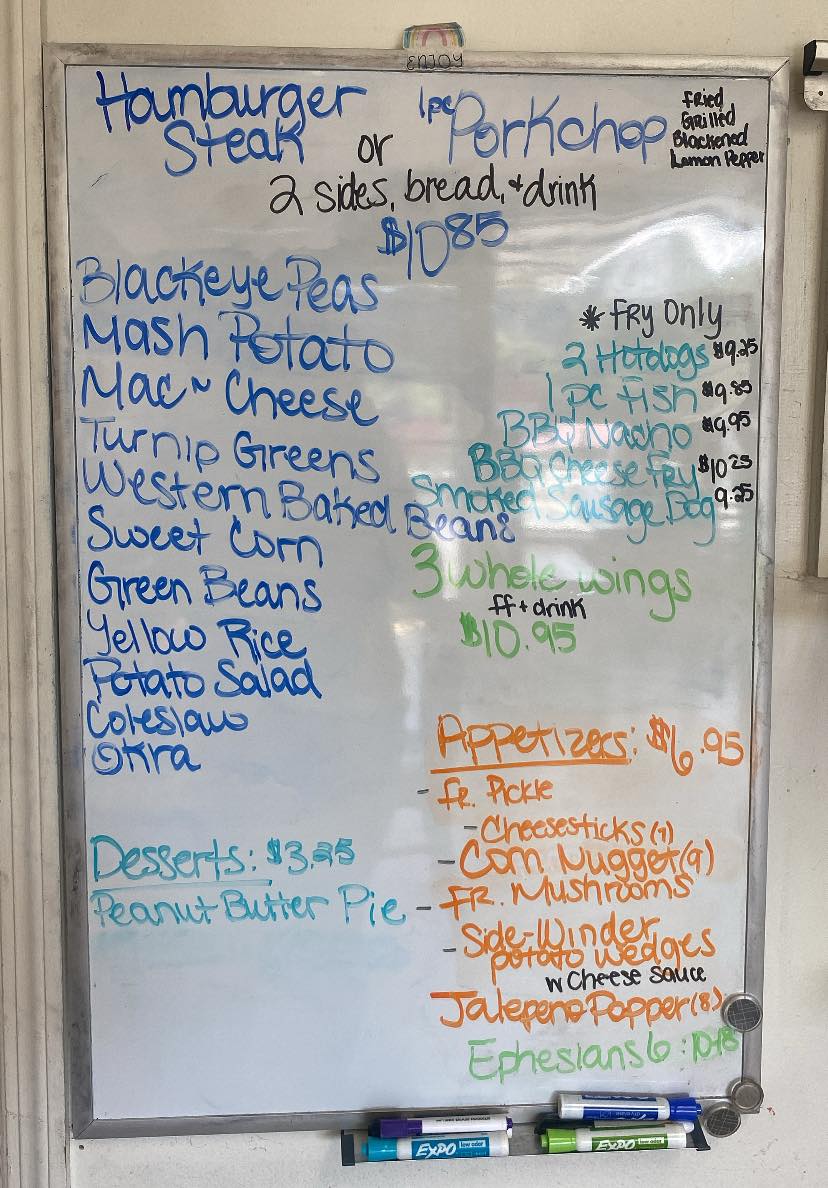 ENJOY
Hamburger Steak
or
1pc Porkchop
Fried
Grilled
Blackened
Lemon Pepper
2 sides, bread, + drink
$10.85
Blackeye Peas
Mash Potato
Mac ~ Cheese
Turnip Greens
Western Baked Beans
Sweet Corn
Green Beans
Yellow Rice
Potato Salad
Coleslaw
Okra
Desserts: $3.25
Peanut Butter Pie
* Fry Only
2 Hotdogs $9.25
1 pc Fish $9.85
BBQ Nacho $9.95
BBQ Cheese Fry $10.25
Smoked Sausage Dog 9.25
3 whole wings
ff + drink
$10.95
Appetizers: $6.95
- Fr. Pickle
- Cheesesticks (7)
- Corn Nugget (9)
- FR. Mushrooms
- Side-Winder
potato wedges
w Cheese sauce
Jalepeno Popper (8)
Ephesians 6:10-18
EXPO low odor
EXPO low odor